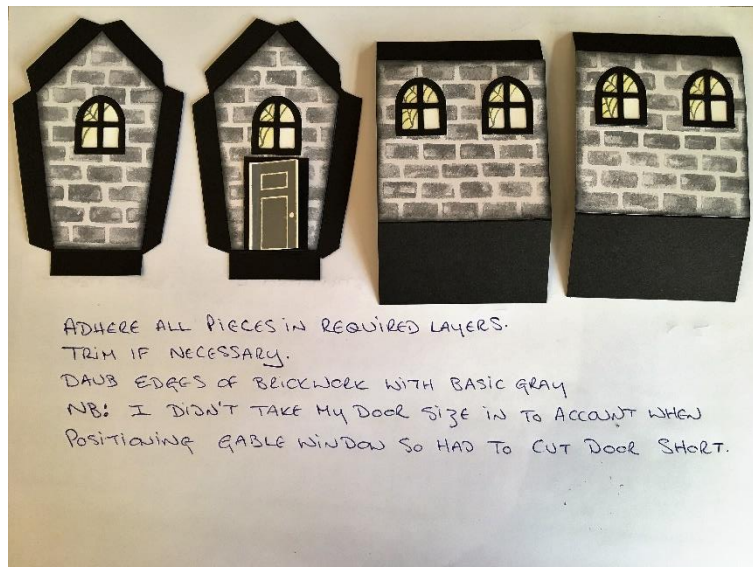 ADHERE ALL PIECES IN REQUIRED LAYERS.
TRIM IF NECESSARY.
DAUB EDGES OF BRICKWORK WITH BASIC GRAY
NB: I DIDN'T TAKE MY DOOR SIZE IN TO ACCOUNT WHEN
POSITIONING GABLE WINDOW SO HAD TO CUT DOOR SHORT.